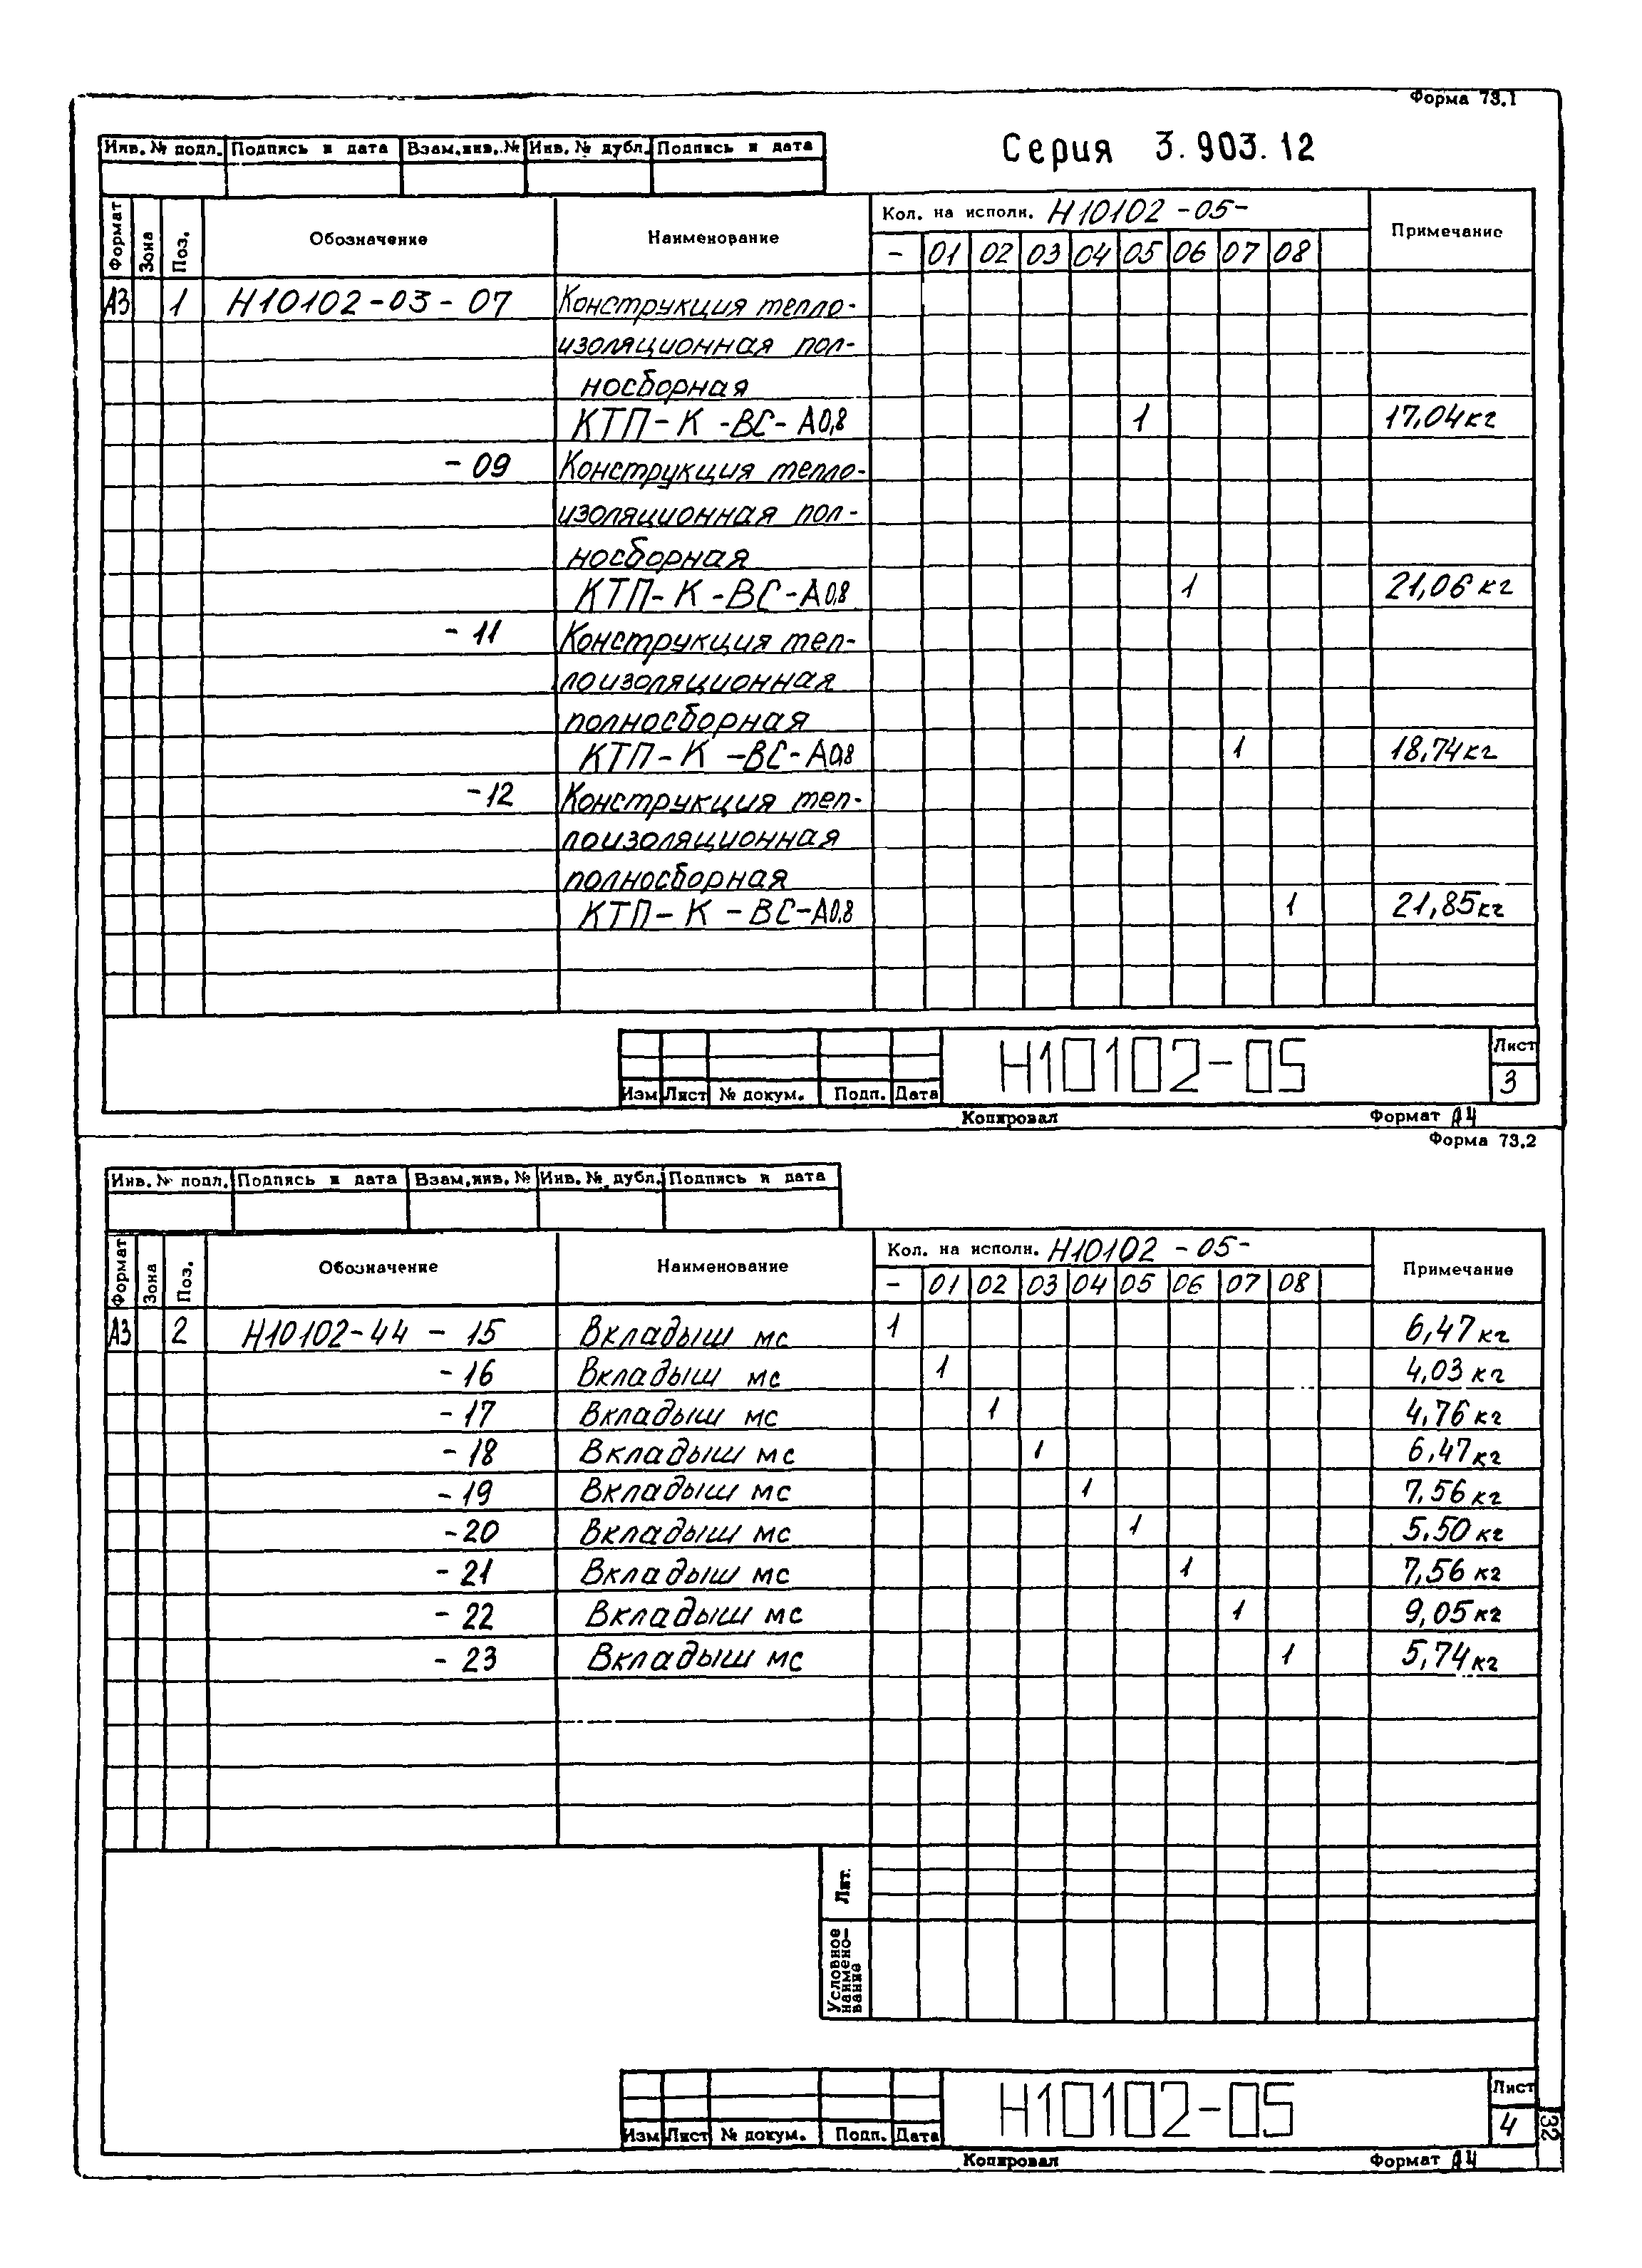 Форма 73.1
Серия 3.903.12
Инв. № подл. Подпись и дата Взам.инв. № Инв. № дубл. Подпись и дата
Формат Зона Поз. Обозначение Наименование Кол. на исполн. Н10102-05- Примечание
- 01 02 03 04 05 06 07 08
А3 1 Н10102-03-07 Конструкция тепло-
изоляционная пол-
носборная
КТП-К-ВС-А0,8 1 17,04кг
-09 Конструкция тепло-
изоляционная пол-
носборная
КТП-К-ВС-А0,8 1 21,06кг
-11 Конструкция теп-
лоизоляционная
полносборная
КТП-К-ВС-А0,8 1 18,74кг
-12 Конструкция теп-
лоизоляционная
полносборная
КТП-К-ВС-А0,8 1 21,85кг
Н10102-05
Лист
3
Изм Лист № докум. Подп. Дата
Копировал Формат А4
Форма 73.2
Инв. № подл. Подпись и дата Взам.инв. № Инв. № дубл. Подпись и дата
Формат Зона Поз. Обозначение Наименование Кол. на исполн. Н10102-05- Примечание
- 01 02 03 04 05 06 07 08
А3 2 Н10102-44-15 Вкладыш мс 1 6,47кг
-16 Вкладыш мс 1 4,03кг
-17 Вкладыш мс 1 4,76кг
-18 Вкладыш мс 1 6,47кг
-19 Вкладыш мс 1 7,56кг
-20 Вкладыш мс 1 5,50кг
-21 Вкладыш мс 1 7,56кг
-22 Вкладыш мс 1 9,05кг
-23 Вкладыш мс 1 5,74кг
Лит.
Условное
наимено-
вание
Н10102-05
Лист
4
Изм Лист № докум. Подп. Дата
32
Копировал Формат А4